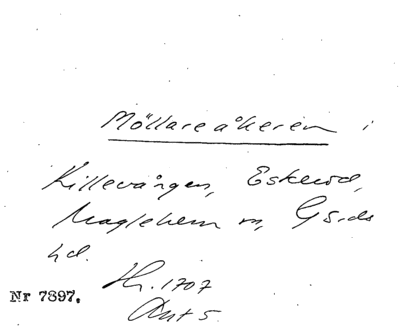 Möllareåkeren i
Killevången, Eskerod,
Maglehem sn, Gärds
hd.
Hr. 1707
Nr 7897.
Ant 5.